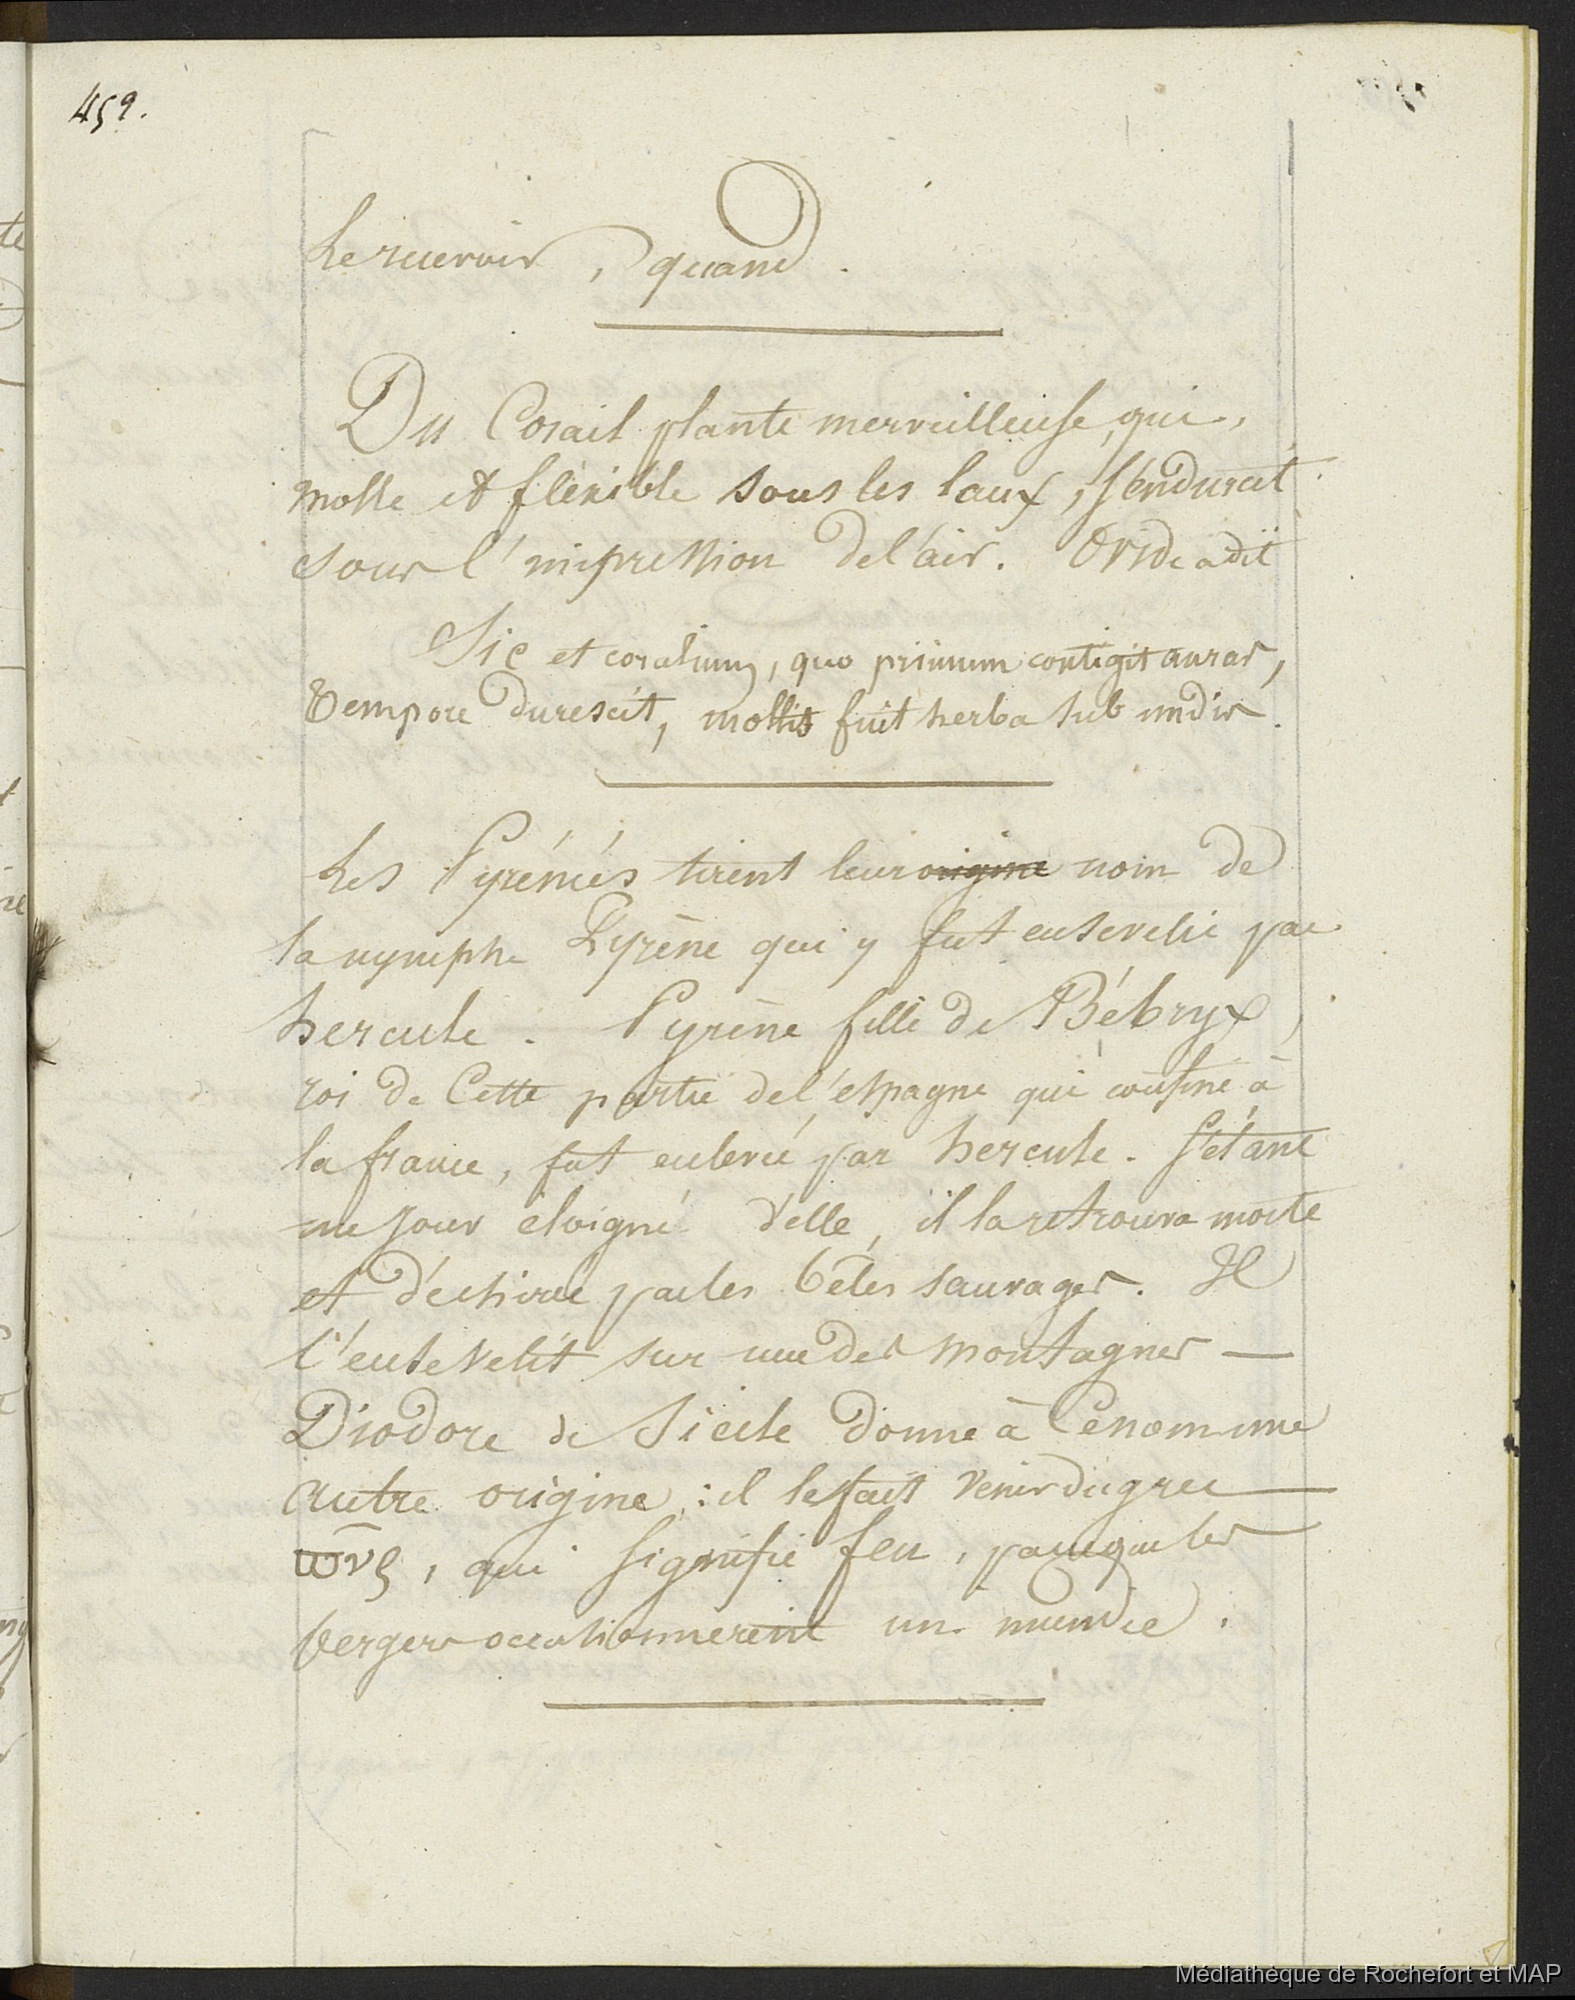 459.
le recevoir, quand.
Du Corail plante merveilleuse, qui,
molle et fléxible sous les eaux, s'endurcit
sous l'impression de l'air. Ovide a dit
Sic et coralium, quo primum contigit auras,
Tempore durescit, mollis fuit herba sub undis.
Les Pyrénées tirent leur origine nom de
la nymphe Pyrène qui y fut ensevelie par
hercule. Pyrène fille de Bébryx,
roi de Cette partie de l'espagne qui confine à
la france, fut enlevée par hercule. S'étant
un jour éloigné d'elle, il la retrouva morte
et déchirée par les bêtes sauvages. Il
l'ensevelit sur une des montagnes —
Diodore de Sicile donne à Ce nom une
autre origine : il le fait venir du grec
ϖῦρ, qui signifie feu, parceque les
bergers occasionnerent un incendie.
Médiathèque de Rochefort et MAP